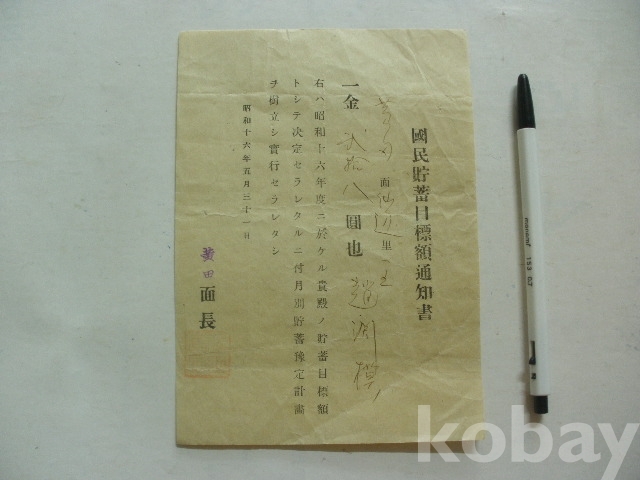 國民貯蓄目標額通知書
黃田面仙辺里
趙
一金貳拾八圓也
右ハ昭和十六年度ニ於ケル貴殿ノ貯蓄目標額
トシテ決定セラレタルニ付月別貯蓄豫定計畫
ヲ樹立シ實行セラレタシ
昭和十六年五月三十一日
黃田面長
monami 153
kobay